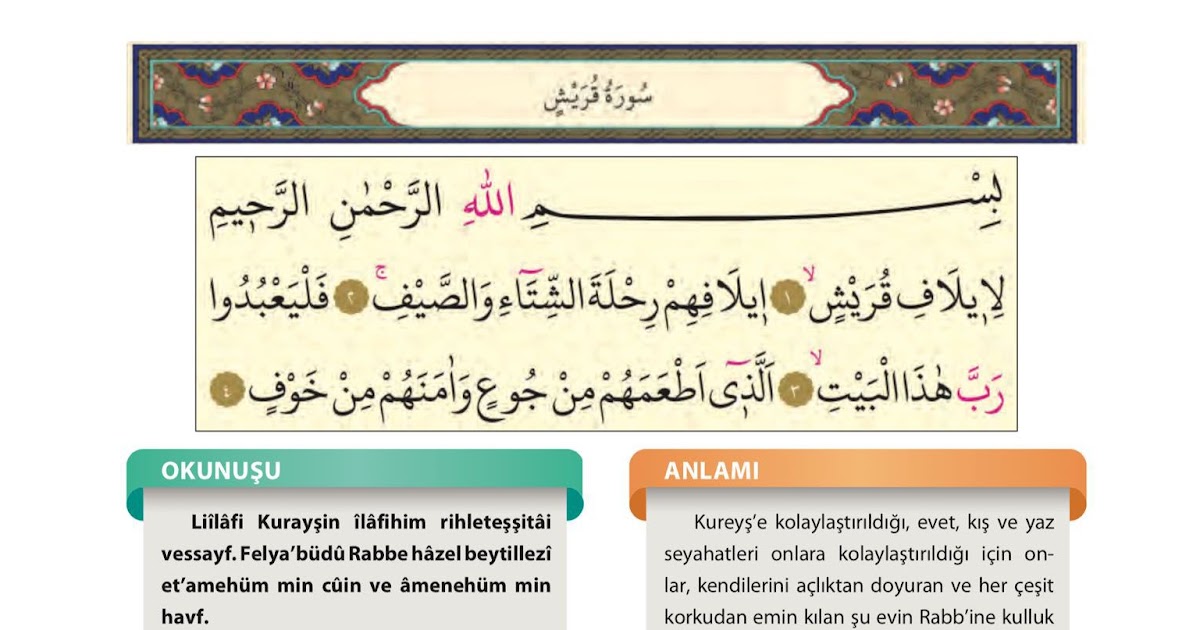 سُورَةُ قُرَيْشٍ
بِسْمِ اللّٰهِ الرَّحْمٰنِ الرَّحٖيمِ
لِاٖيلَافِ قُرَيْشٍۙ ﴿١﴾ اٖيلَافِهِمْ رِحْلَةَ الشِّتَٓاءِ وَالصَّيْفِۚ ﴿٢﴾ فَلْيَعْبُدُوا
رَبَّ هٰذَا الْبَيْتِۙ ﴿٣﴾ اَلَّذٖٓى اَطْعَمَهُمْ مِنْ جُوعٍ وَاٰمَنَهُمْ مِنْ خَوْفٍ ﴿٤﴾
OKUNUŞU
Liîlâfi Kurayşin îlâfihim rihleteşşitâi
vessayf. Felya’büdû Rabbe hâzel beytillezî
et’amehüm min cûin ve âmenehüm min
havf.
ANLAMI
Kureyş’e kolaylaştırıldığı, evet, kış ve yaz
seyahatleri onlara kolaylaştırıldığı için on-
lar, kendilerini açlıktan doyuran ve her çeşit
korkudan emin kılan şu evin Rabb’ine kulluk